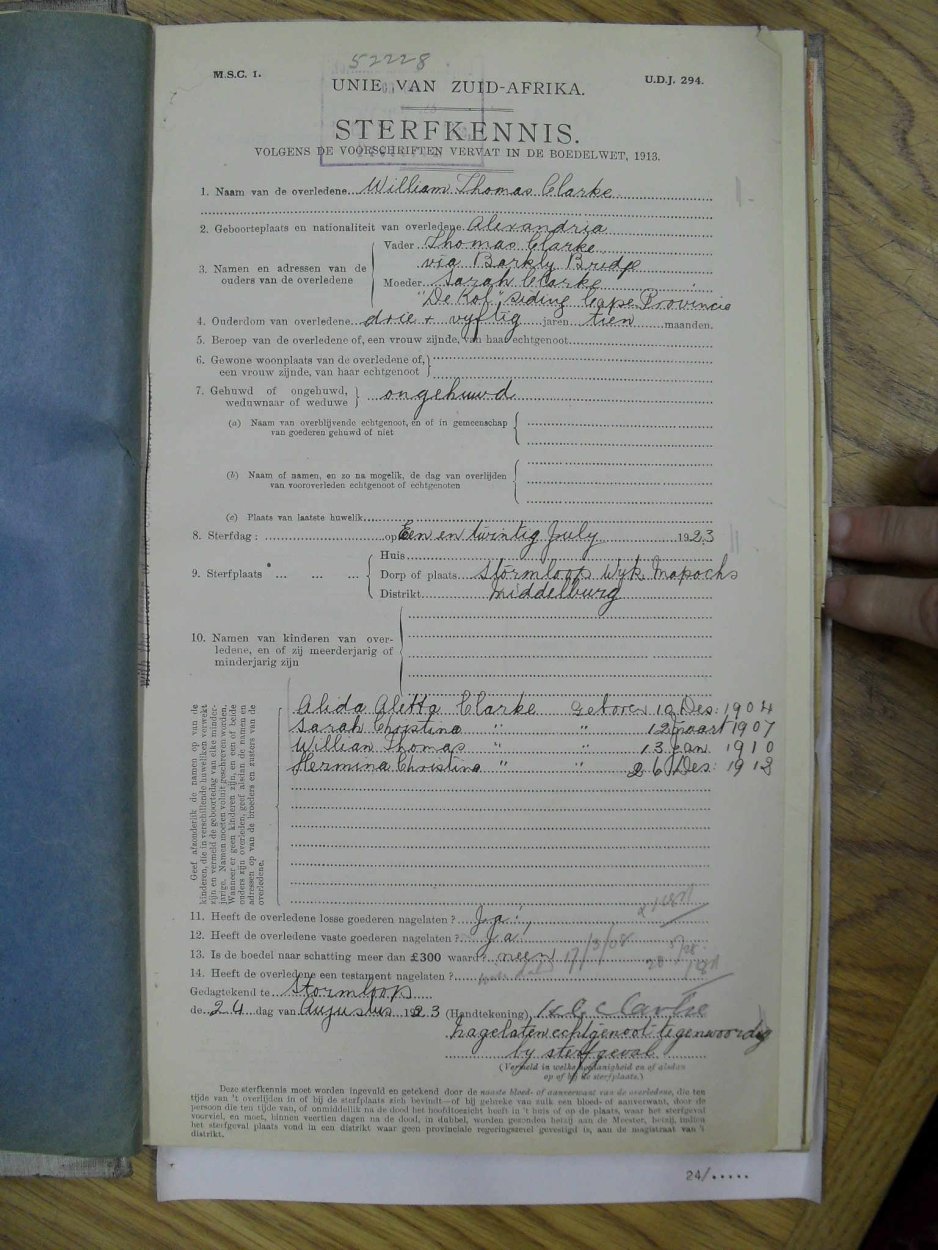 52228
M.S.C. 1.
U.D.J. 294.
UNIE VAN ZUID-AFRIKA.
STERFKENNIS.
VOLGENS DE VOORSCHRIFTEN VERVAT IN DE BOEDELWET, 1913.
1. Naam van de overledene William Thomas Clarke
2. Geboorteplaats en nationaliteit van overledene Alexandria
Vader Thomas Clarke
via Barkly Bridge
3. Namen en adressen van de ouders van de overledene
Moeder Sarah Clarke
"De Kol" siding Cape Provincie
4. Ouderdom van overledene drie + vyftig jaren tien maanden.
5. Beroep van de overledene of, een vrouw zijnde, van haar echtgenoot
6. Gewone woonplaats van de overledene of,
een vrouw zijnde, van haar echtgenoot
7. Gehuwd of ongehuwd,
weduwnaar of weduwe ongehuwd
(a) Naam van overblijvende echtgenoot, en of in gemeenschap
van goederen gehuwd of niet
(b) Naam of namen, en zo na mogelik, de dag van overlijden
van vooroverleden echtgenoot of echtgenoten
(c) Plaats van laatste huwelik
8. Sterfdag : op Een en twintig July 1923
Huis
9. Sterfplaats ... ... ... Dorp of plaats Stormloop Wyk Mapochs
Distrikt Middelburg
10. Namen van kinderen van over-
ledene, en of zij meerderjarig of
minderjarig zijn
Geef afzonderlik de namen op van de
kinderen, die in verschillende huweliken verwekt
zijn en vermeld de geboortedag van elke minder-
jarige. Namen moeten voluit geschreven worden.
Wanneer er geen kinderen zijn, en een of beide
ouders zijn overleden, geef alsdan de namen en
adressen op van de broeders en zusters van de
overledene.
Alida Aletta Clarke Geboren 19 Des: 1904
Sarah Christina " " 12 Maart 1907
William Thomas " " 13 Jan 1910
Hermina Christina " " 26 Des: 1912
11. Heeft de overledene losse goederen nagelaten ? Ja!
12. Heeft de overledene vaste goederen nagelaten ? Ja!
13. Is de boedel naar schatting meer dan £300 waard? neen 17/3/08
14. Heeft de overledene een testament nagelaten ?
Gedagtekend te Stormloop
de 24 dag van Augustus 1923 (Handtekening) Clarke
nagelaten echtgenoot tegenwoordig
by sterfgeval
(Vermeld in welke hoedanigheid en of alsdan
op of bij de sterfplaats.)
Deze sterfkennis moet worden ingevuld en getekend door de naaste bloed- of aanverwant van de overledene, die ten
tijde van 't overlijden in of bij de sterfplaats zich bevindt—of bij gebreke van zulk een bloed- of aanverwant, door de
persoon die ten tijde van, of onmiddellik na de dood het hoofdtoezicht heeft in 't huis of op de plaats, waar het sterfgeval
voorviel, en moet, binnen veertien dagen na de dood, in dubbel, worden gezonden hetzij aan de Meester, hetzij, indien
het sterfgeval plaats vond in een distrikt waar geen provinciale regeringszetel gevestigd is, aan de magistraat van 't
distrikt.
24/.....